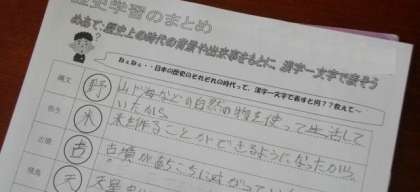 歴史学習のまとめ
めあて・歴史上の時代の背景や出来事をもとに、漢字一文字で表そう
ねぇねぇ・・日本の歴史のそれぞれの時代って、漢字一文字で表すと何??教えて~
縄文
野
山や海などの自然の物を使って生活して
いたから。
弥生
米
米を作ることができるようになったから。
古墳
古
古墳があちこちに
飛鳥
天
天皇